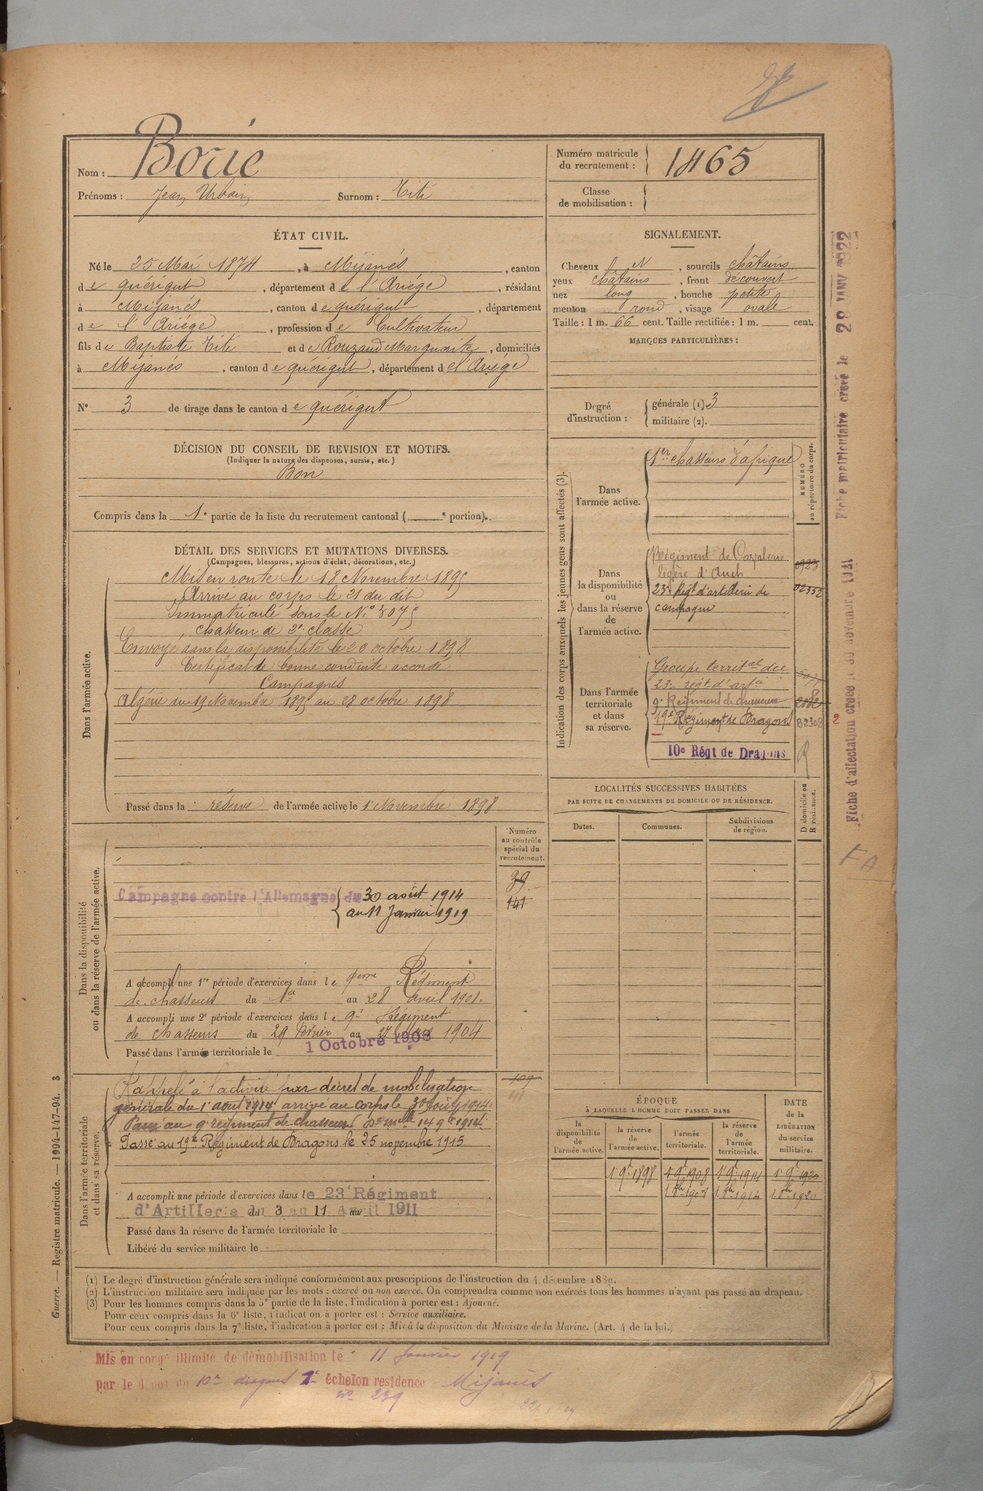 Nom : Borie
Prénoms : Jean Urbain Surnom : Tité
Numéro matricule du recrutement : 1465
Classe de mobilisation :
ÉTAT CIVIL.
Né le 25 Mai 1874, à Mijanès, canton
de quérigut, département de l'Ariège, résidant
à Mijanès, canton de quérigut, département
de l'Ariège, profession de Cultivateur
fils de Baptiste Tité et de Rouzaud Marguerite, domiciliés
à Mijanès, canton de quérigut, département de l'Ariège
N° 3 de tirage dans le canton de quérigut
SIGNALEMENT.
Cheveux N, sourcils châtains
yeux châtains, front découvert
nez long, bouche petite
menton rond, visage ovale
Taille : 1 m. 66 cent. Taille rectifiée : 1 m. cent.
MARQUES PARTICULIÈRES :
Degré d'instruction : générale (1) 3
militaire (2).
DÉCISION DU CONSEIL DE REVISION ET MOTIFS.
(Indiquer la nature des dispenses, sursis, etc.)
Bon
Compris dans la 1e partie de la liste du recrutement cantonal ( e portion).
DÉTAIL DES SERVICES ET MUTATIONS DIVERSES.
(Campagnes, blessures, actions d'éclat, décorations, etc.)
Dans l'armée active.
Mis en route le 18 Novembre 1895
Arrivé au corps le 21 du dit
Immatriculé sous le N° 3075
chasseur de 2e classe
Envoyé dans la disponibilité le 20 octobre 1898
Certificat de bonne conduite accordé
Campagnes
Algérie du 19 Novembre 1895 au 28 octobre 1898
Passé dans la réserve de l'armée active le 1 Novembre 1898
Indication des corps auxquels les jeunes gens sont affectés (3).
NUMÉRO au répertoire du corps.
Dans l'armée active.
1er chasseurs d'afrique
Dans la disponibilité ou dans la réserve de l'armée active.
Régiment de Cavalerie
légère d'Auch
23e Régt d'artillerie de
campagne
02352
Dans l'armée territoriale et dans sa réserve.
Groupe territal du
23e régt d'artie
9e Régiment de chasseurs
19e Régiment de Dragons
10e Régt de Dragons
LOCALITÉS SUCCESSIVES HABITÉES
PAR SUITE DE CHANGEMENTS DE DOMICILE OU DE RÉSIDENCE.
Dates. Communes. Subdivisions de région. D domicile ou R résidence.
Numéro au contrôle spécial du recrutement.
Dans la disponibilité ou dans la réserve de l'armée active.
Campagne contre l'Allemagne du 30 août 1914
au 11 Janvier 1919
A accompli une 1re période d'exercices dans le 9ème Régiment
de chasseurs du 1er au 28 avril 1901.
A accompli une 2e période d'exercices dans le 9e Régiment
de chasseurs du 29 février au 27 1904
Passé dans l'armée territoriale le 1 Octobre 1908
Dans l'armée territoriale et dans sa réserve.
Rappelé à l'activité par décret de mobilisation
générale du 1er août 1914 arrivé au corps le 30 août 1914
Passé au 9e régiment de chasseurs
Passé au 19e Régiment de Dragons le 25 novembre 1915
A accompli une période d'exercices dans le 23e Régiment
d'Artillerie du 3 au 11 avril 1911
Passé dans la réserve de l'armée territoriale le
Libéré du service militaire le
ÉPOQUE
À LAQUELLE L'HOMME DOIT PASSER DANS
la disponibilité de l'armée active. la réserve de l'armée active. l'armée territoriale. la réserve de l'armée territoriale. DATE de la LIBÉRATION du service militaire.
(1) Le degré d'instruction générale sera indiqué conformément aux prescriptions de l'instruction du 4 décembre 1889.
(2) L'instruction militaire sera indiquée par les mots : exercé ou non exercé. On comprendra comme non exercés tous les hommes n'ayant pas passé au drapeau.
(3) Pour les hommes compris dans la 5e partie de la liste, l'indication à porter est : Ajourné.
Pour ceux compris dans la 6e liste, l'indication à porter est : Service auxiliaire.
Pour ceux compris dans la 7e liste, l'indication à porter est : Mis à la disposition du Ministre de la Marine. (Art. 4 de la loi.)
Mis en congé illimité de démobilisation le 11 Janvier 1919
par le dépôt du 10e dragons 2e échelon résidence Mijanès
N° 239
Guerre. — Registre matricule. — 1994-147-94. 3
Fiche matriculaire créée le 28 JANV 1922
Fiche d'affectation créée